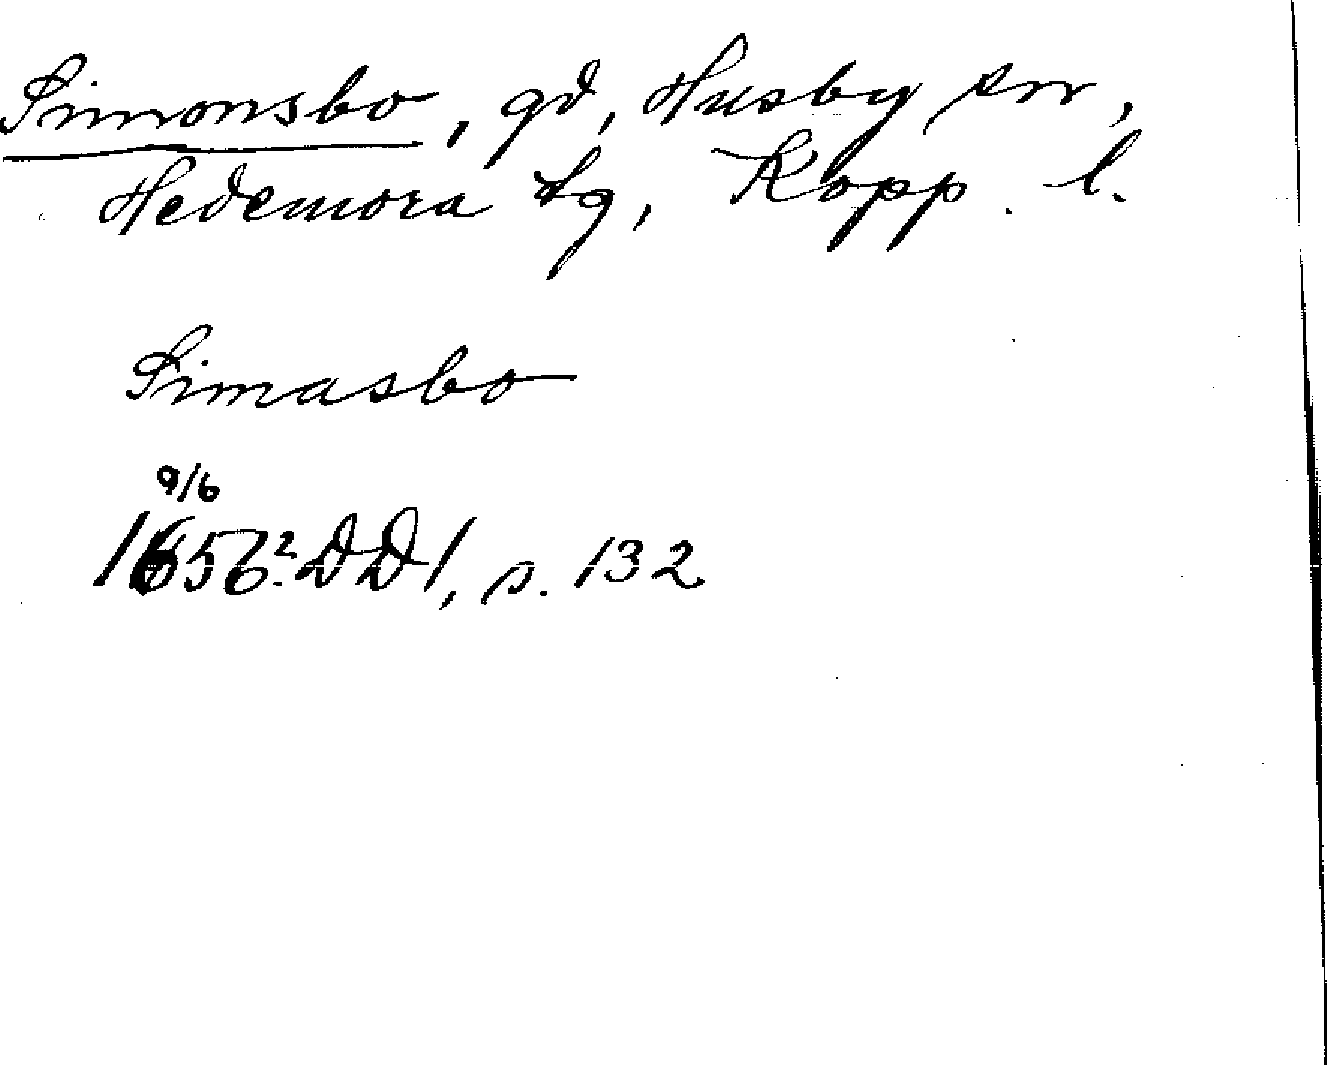 Simonsbo, gd, Husby sn,
Hedemora tg, Kopp. l.
Simasbo
9/6
1656². DD1, s. 132